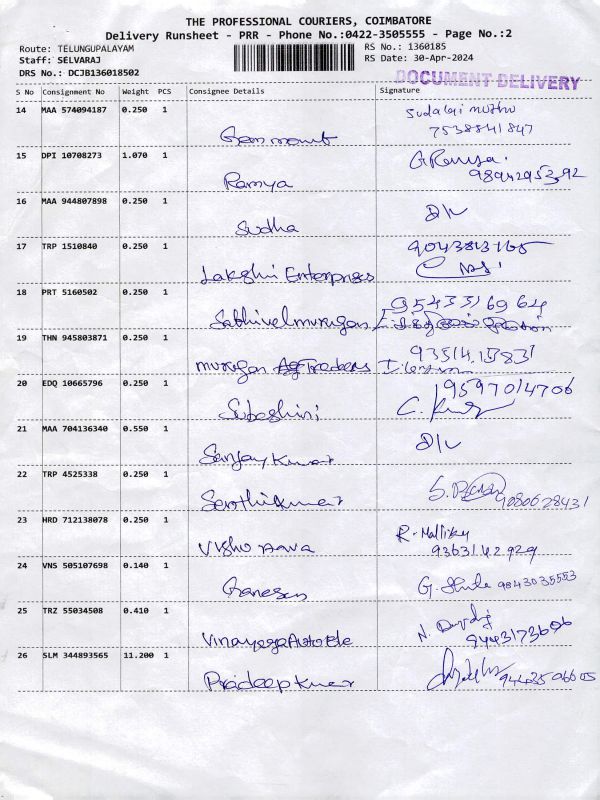 THE PROFESSIONAL COURIERS, COIMBATORE
Delivery Runsheet - PRR - Phone No.:0422-3505555 - Page No.:2
Route: TELUNGUPALAYAM
RS No.: 1360185
Staff: SELVARAJ
RS Date: 30-Apr-2024
DRS No.: DCJB136018502
DOCUMENT DELIVERY
S No Consignment No Weight PCS Consignee Details Signature
14 MAA 574094187 0.250 1
Sudalai muthu
7538841847
15 DPI 10708273 1.070 1
G Ramya.
Ramya
9894295392
16 MAA 944807898 0.250 1
Sudha
D/L
17 TRP 1510840 0.250 1
Lakshi Enterprises
18 PRT 5160502 0.250 1
9543316964
Sathivelmurugan
19 THN 945803871 0.250 1
Murugan Traders
20 EDQ 10665796 0.250 1
9597014706
Subashini
21 MAA 704136340 0.550 1
D/L
Sanjay Kumar
22 TRP 4525338 0.250 1
Senthilkumar
9080628431
23 HRD 712138078 0.250 1
R-Mallika
Vishnu
9363142929
24 VNS 505107698 0.140 1
Ganesan
9843035553
25 TRZ 55034508 0.410 1
Vinayaga
9443173696
26 SLM 344893565 11.200 1
Pradeep Kumar
9443506605